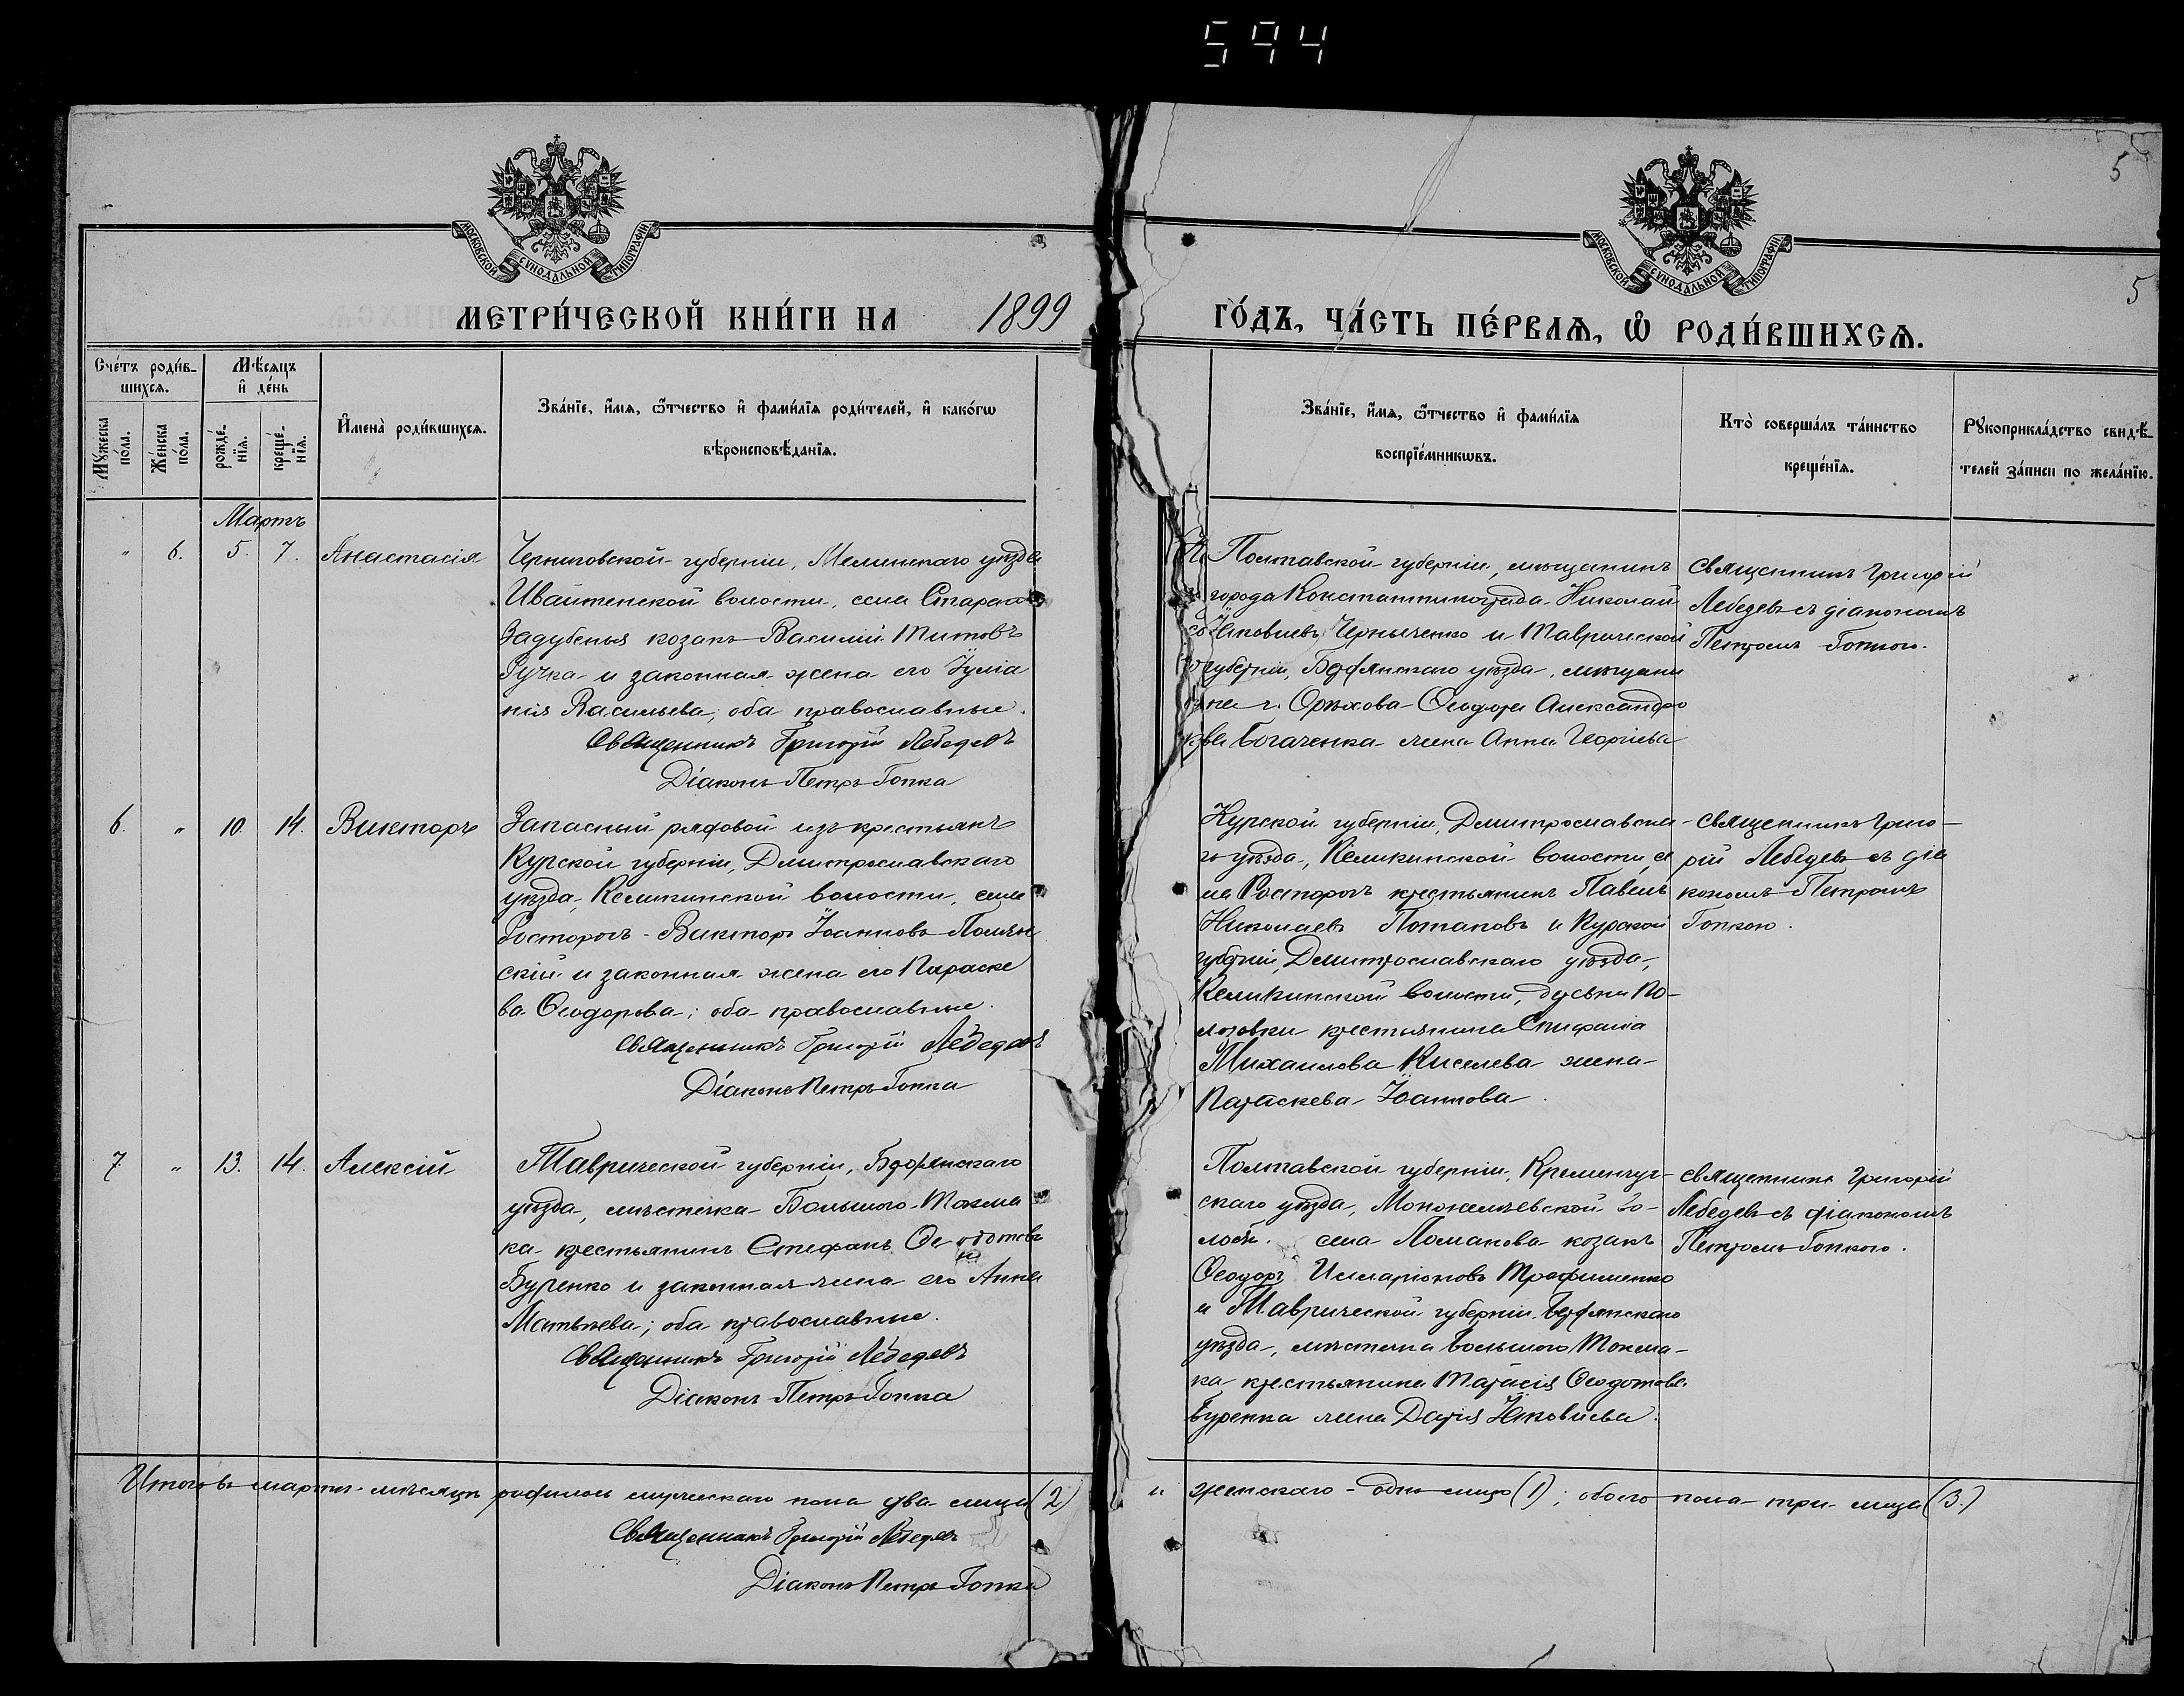 594
5
5
МОСКОВСКОЙ СѴНОДАЛЬНОЙ ТИПОГРАФІИ
МОСКОВСКОЙ СѴНОДАЛЬНОЙ ТИПОГРАФІИ
МЕТРИ́ЧЕСКОЙ КНИ́ГИ НА 1899 ГО́ДЪ, ЧА́СТЬ ПЕ́РВАѦ, Ѽ РОДИ́ВШИХСѦ.
Сче́тъ роди́в-
шихсѧ.
Мꙋ́жеска по́ла.
Же́нска по́ла.
Мѣ́сѧцъ
и҆ де́нь
рожде́-
нїѧ.
креще́-
нїѧ.
И҆мена̀ роди́вшихсѧ.
Зва́нїе, и҆́мѧ, ѻ҆́тчество и҆ фами́лїѧ роди́телей, и҆ како́гѡ
вѣроисповѣ́данїѧ.
Зва́нїе, и҆́мѧ, ѻ҆́тчество и҆ фами́лїѧ
воспрїе́мникѡвъ.
Кто̀ соверша́лъ та́инство
креще́нїѧ.
Рꙋкоприкла́дство свидѣ́-
телей за́писи по жела́нїю.
Мартъ
" 6. 5. 7. Анастасія
Черниговской губерніи, Мглинскаго уѣзда
Ивайтенской волости, села Стараго
Задубенья козакъ Василій Титовъ
Ручка и законная жена его Іуліа
нія Васильева; оба православные.
Священникъ Григорій Лебедевъ
Діаконъ Петръ Гопка
Полтавской губерніи, мѣщанинъ
города Константинограда Николай
Яковлевъ Черниченко и Таврической
губерніи, Бердянскаго уѣзда, мѣщани
на г. Орѣхова Ѳеодора Александро
ва Богаченка жена Анна Георгіева
Священникъ Григорій
Лебедевъ съ діакономъ
Петромъ Гопкою.
6. " 10. 14. Викторъ
Запасный рядовой изъ крестьянъ
Курской губерніи, Дмитрославскаго
уѣзда, Келикинской волости, села
Росторогъ Викторъ Іоанновъ Полян
скій и законная жена его Параске
ва Ѳеодорова; оба православные.
Священникъ Григорій Лебедевъ
Діаконъ Петръ Гопка
Курской губерніи, Дмитрославска
го уѣзда, Келикинской волости, се
ла Росторогъ крестьянинъ Павелъ
Николаевъ Потаповъ и Курской
губерніи, Дмитрославскаго уѣзда,
Келикинской волости, деревни По-
лозовки крестьянина Епифанія
Михаилова Киселева жена
Параскева Іоаннова.
Священникъ Григо-
рій Лебедевъ съ діа
кономъ Петромъ
Гопкою.
7. " 13. 14. Алексій
Таврической губерніи, Бердянскаго
уѣзда, мѣстечка Большого Токма
ка крестьянинъ Стефанъ Ѳеодотовъ
Буренко и законная жена его Анна
Матвѣева; оба православные.
Священникъ Григорій Лебедевъ
Діаконъ Петръ Гопка
Полтавской губерніи, Кременчуг-
скаго уѣзда, во-
лости села Ломанова козакъ
Ѳеодоръ Иларіоновъ Трофименко
и Таврической губерніи Бердянскаго
уѣзда, мѣстечка Большого Токма-
ка крестьянина Тарасія Ѳеодотова
Буренка жена Дарія Яковлева.
Священникъ Григорій
Лебедевъ съ діакономъ
Петромъ Гопкою.
Итого въ мартѣ мѣсяцѣ родилось мужескаго пола два лица (2) и женскаго - одно лицо (1); обоего пола три лица (3.)
Священникъ Григорій Лебедевъ
Діаконъ Петръ Гопка